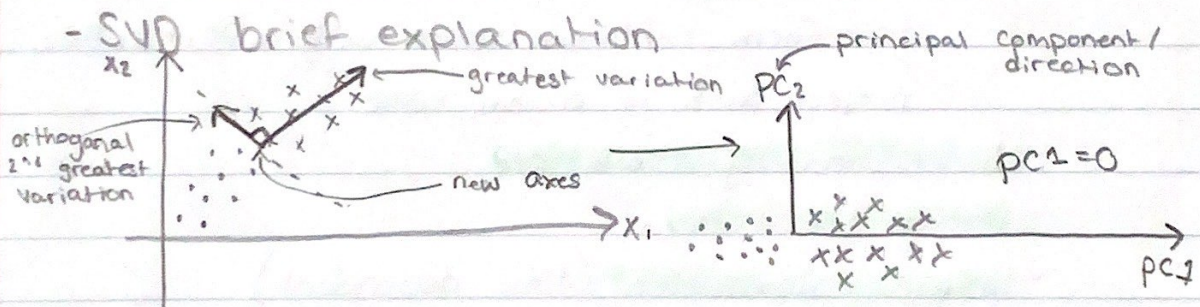 - SVD brief explanation
x2
greatest variation
orthogonal
2nd greatest
variation
new axes
x1
principal component/
direction
PC2
PC1=0
PC1